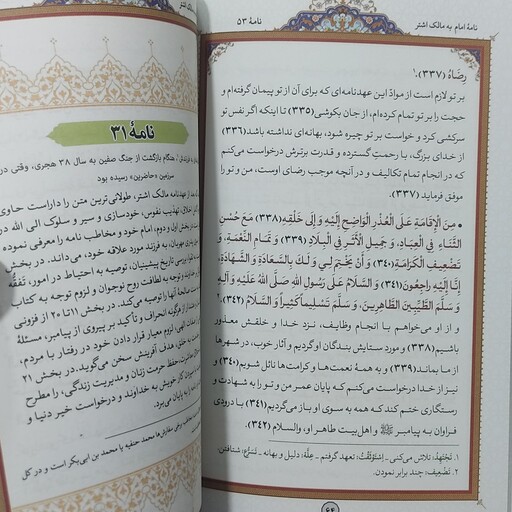 نامهٔ امام به مالک اشتر
نامهٔ ۵۳
رِضَاهُ (۳۳۷).۱
بر تو لازم است از موادّ این عهدنامه‌ای که برای آن از تو پیمان گرفته‌ام و
حجت را بر تو تمام کرده‌ام، از جان بکوشی (۳۳۵) تا اینکه اگر نفس تو
سرکشی کرد و خواست بر تو چیره شود، بهانه‌ای نداشته باشد (۳۳۶)
از خدای بزرگ، با رحمتِ گسترده و قدرت برترش درخواست می‌کنم
که در انجام تمام تکالیف و در آنچه موجب رضای اوست، من و تو را
موفق فرماید (۳۳۷)
• مِنَ الْإِقَامَةِ عَلَى الْعُذْرِ الْوَاضِحِ إِلَيْهِ وَ إِلَى خَلْقِهِ (۳۳۸) مَعَ حُسْنِ
الثَّنَاءِ فِي الْعِبَادِ، وَ جَمِيلِ الْأَثَرِ فِي الْبِلَادِ (۳۳۹) وَ تَمَامِ النِّعْمَةِ، وَ
تَضْعِيفِ الْكَرَامَةِ (۳۴۰) وَ أَنْ يَخْتِمَ لِي وَ لَكَ بِالسَّعَادَةِ وَ الشَّهَادَةِ،
إِنَّا إِلَيْهِ رَاجِعُونَ (۳۴۱) وَ السَّلَامُ عَلَى رَسُولِ اللهِ صَلَّى اللهُ عَلَيْهِ وَ آلِهِ
وَ سَلَّمَ الطَّيِّبِينَ الطَّاهِرِينَ، وَ سَلَّمَ تَسْلِيماً كَثِيراً وَ السَّلَامُ (۳۴۲).۲
و از او می‌خواهم با انجام وظایف، نزد خدا و خلقش معذور
باشیم (۳۳۸) و مورد ستایش بندگان او گردیم و آثار خوب، در شهرها
از ما بماند (۳۳۹) و به همهٔ نعمت‌ها و کرامت‌ها نائل شویم (۳۴۰) و
نیز از خدا درخواست می‌کنم که پایان عمر من و تو را به شهادت و
رستگاری ختم کند که همه به سوی او باز می‌گردیم (۳۴۱) با درودی
فراوان به پیامبر ﷺ و اهل‌بیت طاهر او، والسلام (۳۴۲).
۱. تَجْتَهِدُ: تلاش می‌کنی ـ اِسْتَوْثَقْتُ: تعهد گرفتم ـ عِلَّة: دلیل و بهانه ـ تَسَرُّع: شتافتن.
۲. تَضْعِیف: چند برابر نمودن.
۶۴
نامهٔ ۳۱
هنگام بازگشت از جنگ صفین به سال ۳۸ هجری، وقتی در
سرزمین «حاضرین» رسیده بود
از عهدنامه مالک اشتر، طولانی‌ترین متن را داراست حاوی
تهذیب نفوس، خودسازی و سیر و سلوک الی الله در
در بخش اول و دوم، امام خود و مخاطب نامه را معرفی نموده
پدری مهربان، به فرزند مورد علاقه خود، می‌داند. در بخش
بررسی تاریخ پیشینیان، توصیه به احتیاط در امور، تَفَقُّه
با توجه به لطافت روح نوجوان و لزوم توجه به کتاب
صالحهٔ آنها را توصیه می‌کند. در بخش ۱۱ تا ۲۰ از فزونی
از هرگونه انحراف و تأکید بر پیروی از پیامبر، مسئلهٔ
الهی، لزوم معیار قرار دادن خود در رفتار با مردم،
به خلق، هدف آفرینش سخن می‌گوید. در بخش ۲۱
حفظ حرمت زنان و مدیریت زندگی، را مطرح
کار خویش به خداوند و درخواست خیر دنیا و
به پایان می‌برد.
سفارش‌ها محمد حنفیه یا محمد بن ابی‌بکر است و در کل